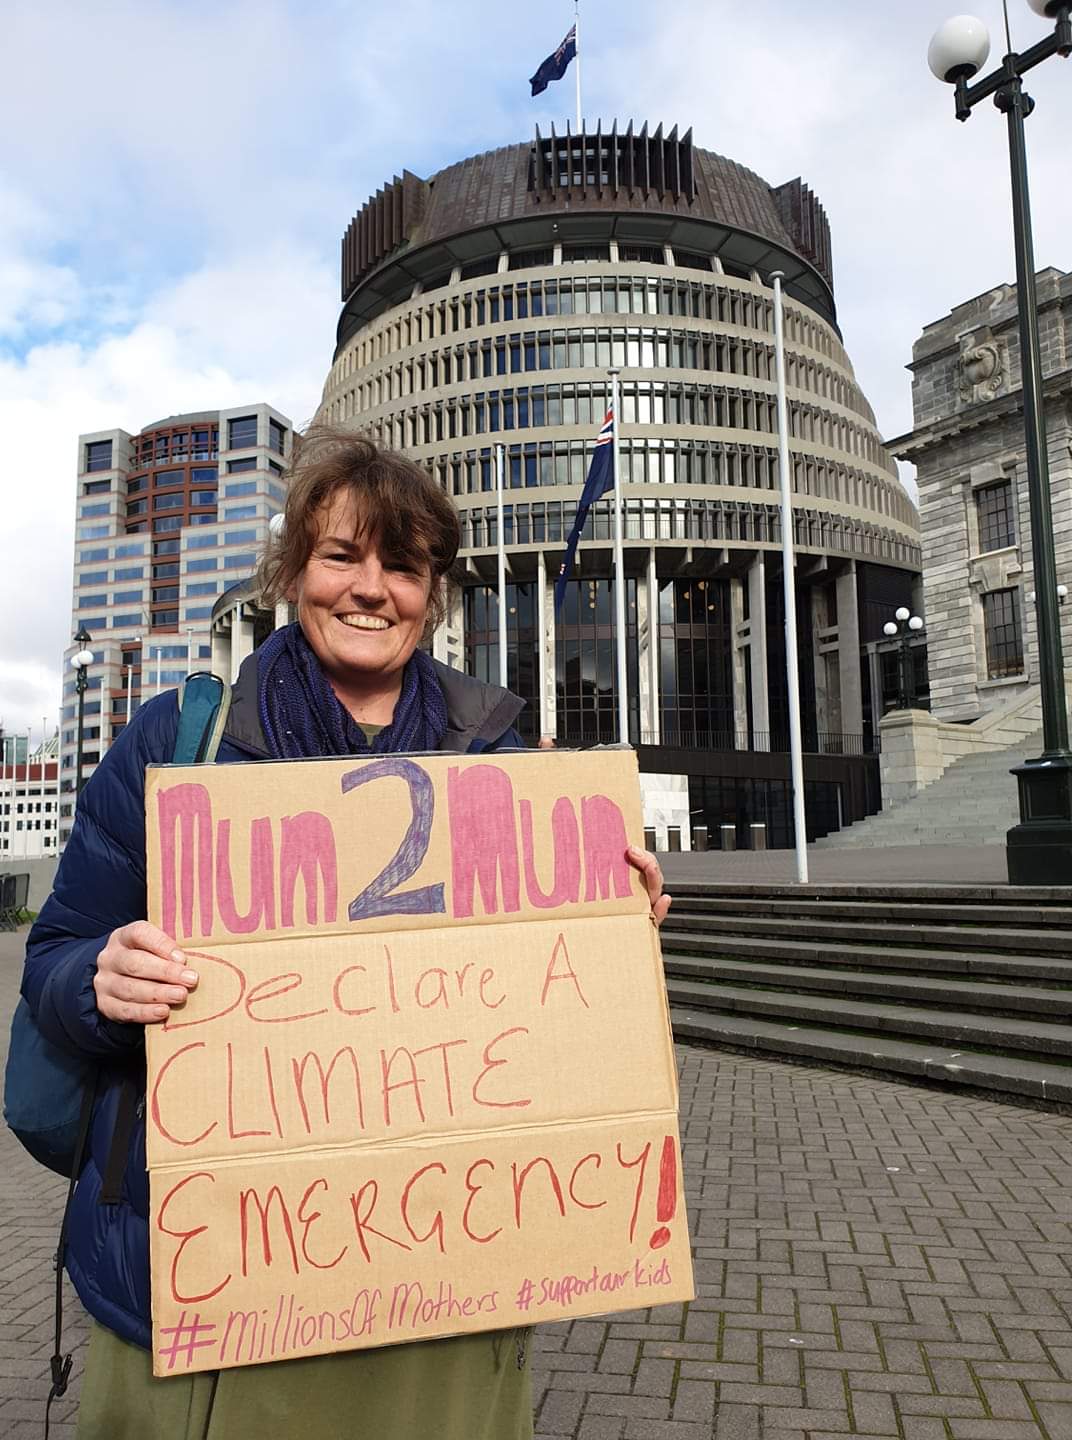 Mum 2 Mum
Declare A
CLIMATE
EMERGENCY!
#millionsOf Mothers #supportourkids